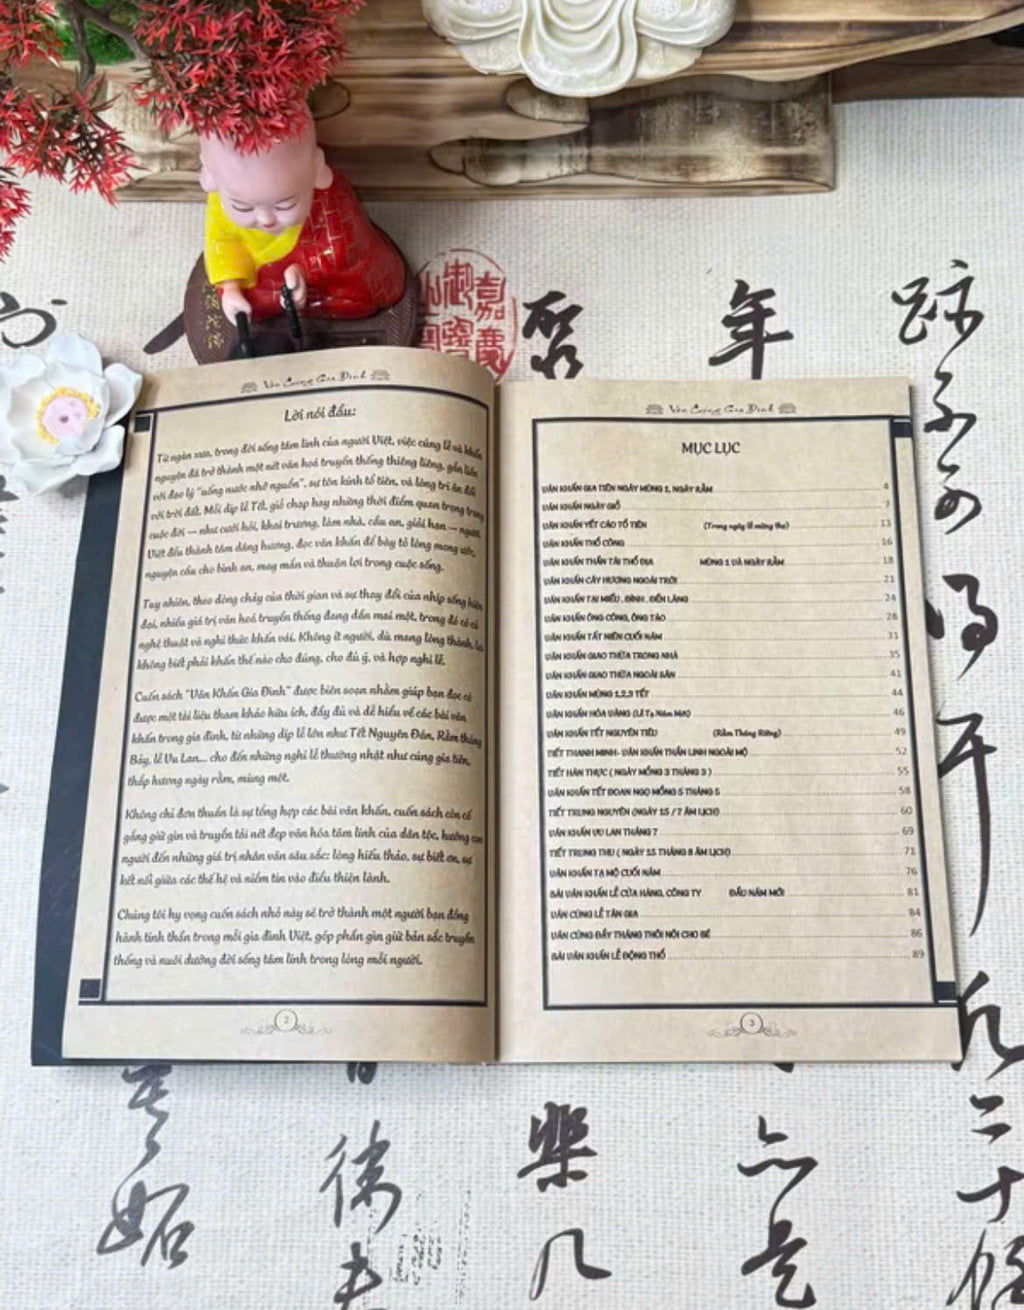 Văn Cúng Gia Đình
Lời nói đầu:
Từ ngàn xưa, trong đời sống tâm linh của người Việt, việc cúng lễ và khấn
nguyện đã trở thành một nét văn hoá truyền thống thiêng liêng, gắn liền
với đạo lý "uống nước nhớ nguồn", sự tôn kính tổ tiên, và lòng tri ân đối
với trời đất. Mỗi dịp lễ Tết, giỗ chạp hay những thời điểm quan trọng trong
cuộc đời — như cưới hỏi, khai trương, làm nhà, cầu an, giải hạn — người
Việt đều thành tâm dâng hương, đọc văn khấn để bày tỏ lòng mong ước,
nguyện cầu cho bình an, may mắn và thuận lợi trong cuộc sống.
Tuy nhiên, theo dòng chảy của thời gian và sự thay đổi của nhịp sống hiện
đại, nhiều giá trị văn hoá truyền thống đang dần mai một, trong đó có cả
nghệ thuật và nghi thức khấn vái. Không ít người, dù mang lòng thành, lại
không biết phải khấn thế nào cho đúng, cho đủ ý, và hợp nghi lễ.
Cuốn sách "Văn Khấn Gia Đình" được biên soạn nhằm giúp bạn đọc có
được một tài liệu tham khảo hữu ích, đầy đủ và dễ hiểu về các bài văn
khấn trong gia đình, từ những dịp lễ lớn như Tết Nguyên Đán, Rằm tháng
Bảy, lễ Vu Lan... cho đến những nghi lễ thường nhật như cúng gia tiên,
thắp hương ngày rằm, mùng một.
Không chỉ đơn thuần là sự tổng hợp các bài văn khấn, cuốn sách còn cố
gắng giữ gìn và truyền tải nét đẹp văn hóa tâm linh của dân tộc, hướng con
người đến những giá trị nhân văn sâu sắc: lòng hiếu thảo, sự biết ơn, sự
kết nối giữa các thế hệ và niềm tin vào điều thiện lành.
Chúng tôi hy vọng cuốn sách nhỏ này sẽ trở thành một người bạn đồng
hành tinh thần trong mỗi gia đình Việt, góp phần gìn giữ bản sắc truyền
thống và nuôi dưỡng đời sống tâm linh trong lòng mỗi người.
2
Văn Cúng Gia Đình
MỤC LỤC
VĂN KHẤN GIA TIÊN NGÀY MÙNG 1, NGÀY RẰM 4
VĂN KHẤN NGÀY GIỖ 7
VĂN KHẤN YẾT CÁO TỔ TIÊN (Trong ngày lễ mừng thọ) 13
VĂN KHẤN THỔ CÔNG 16
VĂN KHẤN THẦN TÀI THỔ ĐỊA MÙNG 1 VÀ NGÀY RẰM 18
VĂN KHẤN CÂY HƯƠNG NGOÀI TRỜI 21
VĂN KHẤN TẠI MIẾU , ĐÌNH , ĐỀN LÀNG 24
VĂN KHẤN ÔNG CÔNG, ÔNG TÁO 28
VĂN KHẤN TẤT NIÊN CUỐI NĂM 31
VĂN KHẤN GIAO THỪA TRONG NHÀ 35
VĂN KHẤN GIAO THỪA NGOÀI SÂN 41
VĂN KHẤN MÙNG 1,2,3 TẾT 44
VĂN KHẤN HÓA VÀNG (Lễ Tạ Năm Mới) 46
VĂN KHẤN TẾT NGUYÊN TIÊU (Rằm Tháng Riêng) 49
TIẾT THANH MINH- VĂN KHẤN THẦN LINH NGOÀI MỘ 52
TIẾT HÀN THỰC ( NGÀY MỒNG 3 THÁNG 3 ) 55
VĂN KHẤN TẾT ĐOAN NGỌ MỒNG 5 THÁNG 5 58
TIẾT TRUNG NGUYÊN (NGÀY 15 / 7 ÂM LỊCH) 60
VĂN KHẤN VU LAN THÁNG 7 69
TIẾT TRUNG THU ( NGÀY 15 THÁNG 8 ÂM LỊCH) 71
VĂN KHẤN TẠ MỘ CUỐI NĂM 76
BÀI VĂN KHẤN LỄ CỬA HÀNG, CÔNG TY ĐẦU NĂM MỚI 81
VĂN CÚNG LỄ TÂN GIA 84
VĂN CÚNG ĐẦY THÁNG THÔI NÔI CHO BÉ 86
BÀI VĂN KHẤN LỄ ĐỘNG THỔ 89
3
年